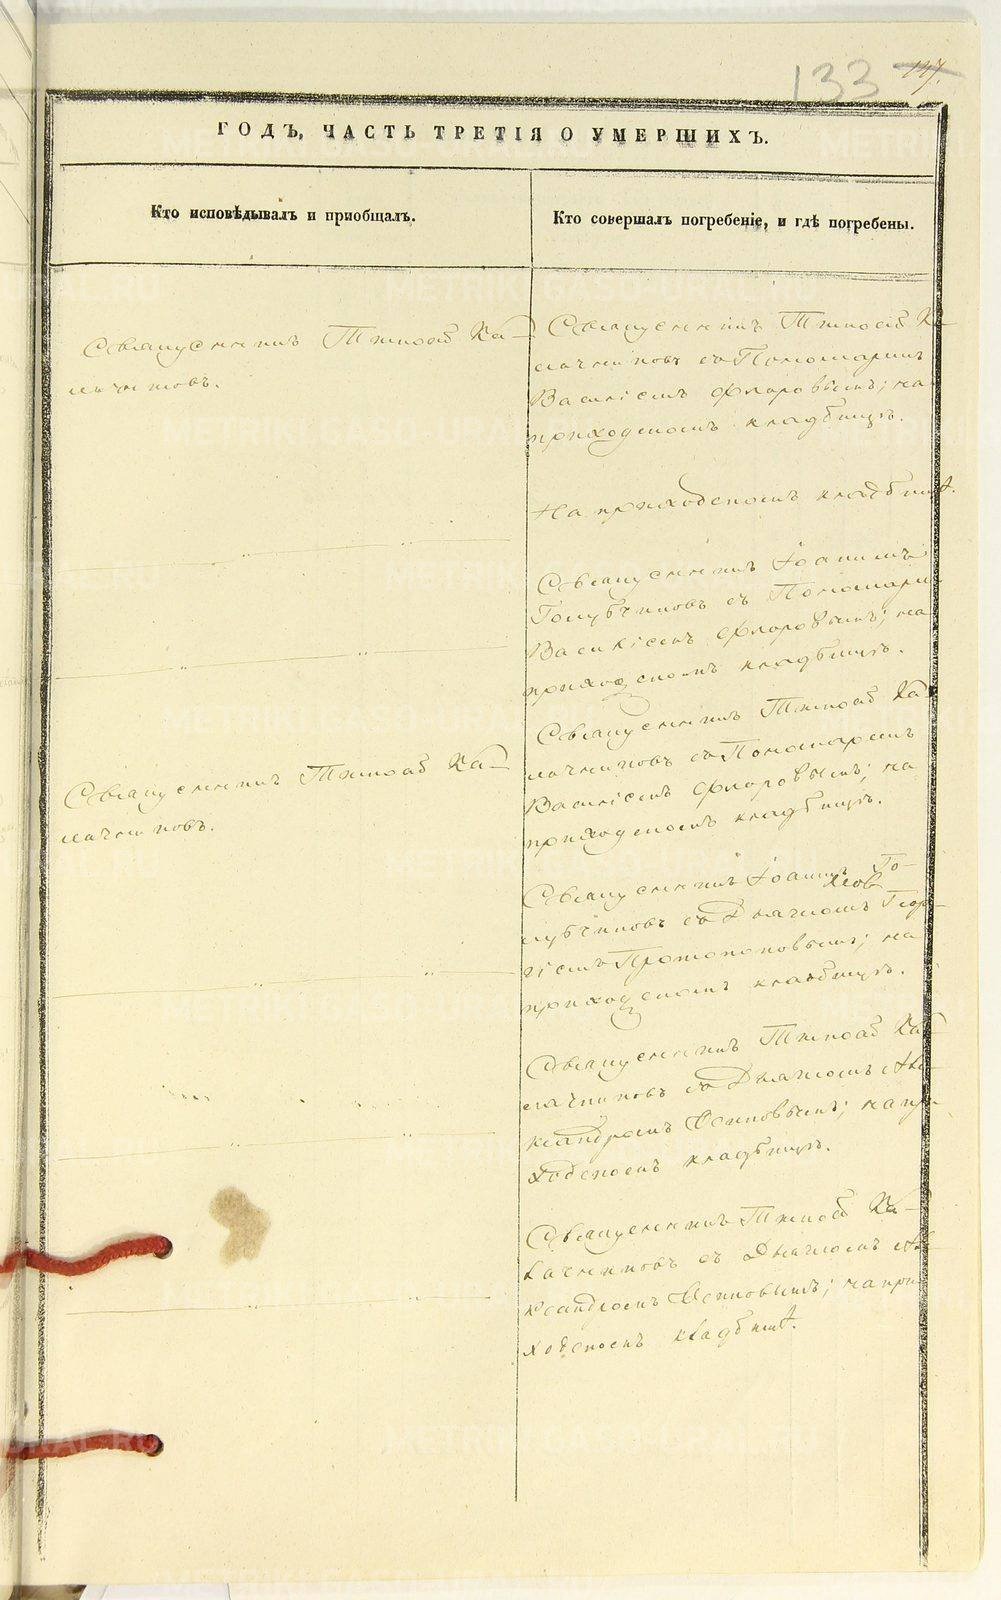 133 137.
ГОДЪ, ЧАСТЬ ТРЕТІЯ О УМЕРШИХЪ.
Кто исповѣдывалъ и пріобщалъ.
Кто совершалъ погребеніе, и гдѣ погребены.
Священникъ Тимоѳей Ка-
лачниковъ.
Священникъ Тимоѳей Ка-
лачниковъ.
Священникъ Тимоѳей Ка-
лачниковъ съ Пономаремъ
Василіемъ Флоровымъ; на
приходскомъ кладбищѣ.
На приходскомъ кладбищѣ.
Священникъ Іоаннъ
Голубчиковъ съ Пономаремъ
Василіемъ Флоровымъ; на
приходскомъ кладбищѣ.
Священникъ Тимоѳей Ка-
лачниковъ съ Пономаремъ
Василіемъ Флоровымъ; на
приходскомъ кладбищѣ.
Священникъ Іоаннъ Го-
лубчиковъ съ Дьячкомъ Геор-
гіемъ Протопоповымъ; на
приходскомъ кладбищѣ.
Священникъ Тимоѳей Ка-
лачниковъ съ Дьячкомъ Але-
ксандромъ; на при-
ходскомъ кладбищѣ.
Священникъ Тимоѳей Ка-
лачниковъ съ Дьячкомъ Але-
ксандромъ; на при-
ходскомъ кладбищѣ.
METRIKI.GASO-URAL.RU